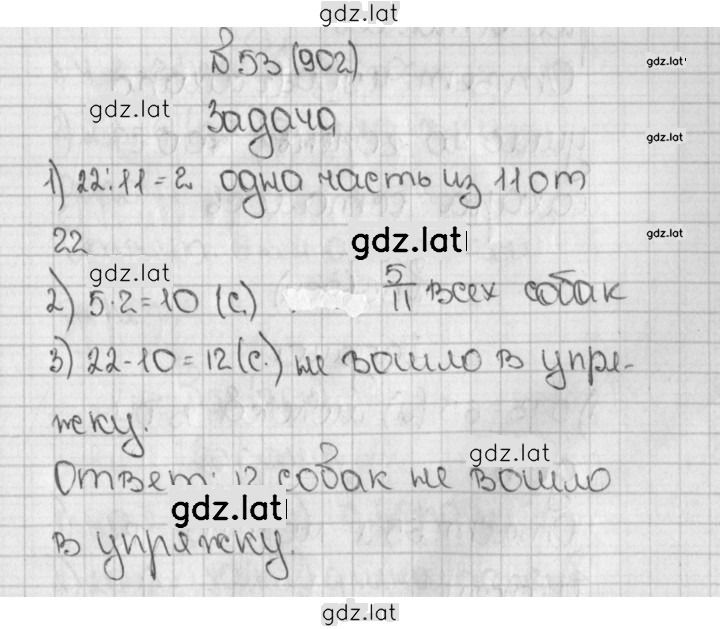 gdz.lat
№ 53 (902)
gdz.lat
gdz.lat
Задача
gdz.lat
1) 22:11=2 одна часть из 11 от
22
gdz.lat
gdz.lat
gdz.lat
2) 5·2=10 (с.) 5/11 всех собак
3) 22-10=12(с.) не вошло в упря-
жку.
gdz.lat
Ответ: 12 собак не вошло
gdz.lat
в упряжку.
gdz.lat